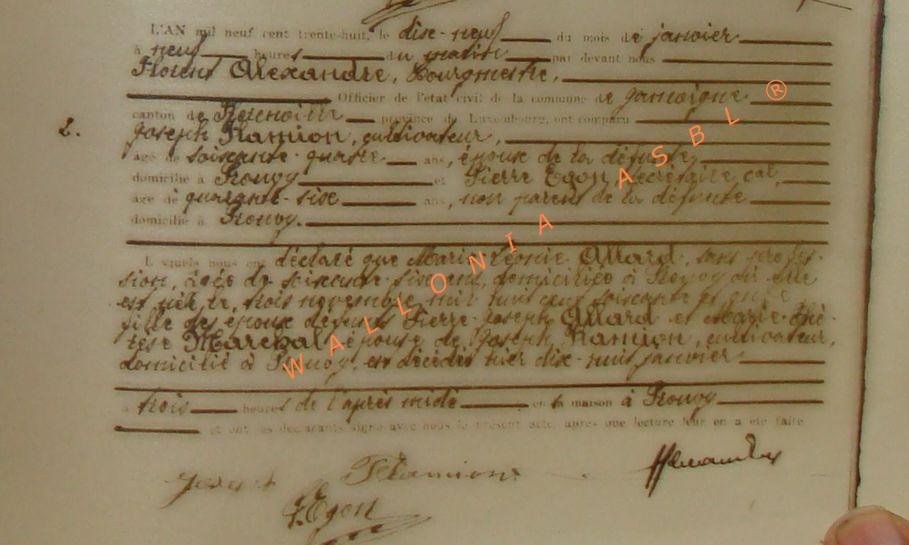 L'AN mil neuf cent trente-huit, le dix-neuf du mois de janvier
à neuf heures du matin par devant nous
Florent Alexandre, Bourgmestre,
Officier de l'état civil de la commune de
canton de Florenville province de Luxembourg, ont comparu
2. Joseph Flamion, cultivateur,
âgé de soixante-quatre ans, époux de la défunte,
domicilié à et Pierre Egon, secrétaire cal,
âgé de quarante-six ans, non parent de la défunte
domicilié à
Lesquels nous ont déclaré que Marie Léonie Allard, sans profes-
sion, âgée de soixante- ans, domiciliée à où elle
est née le trois novembre mil huit cent soixante et
fille des époux défunts Pierre-Joseph Allard et Marie-Thé-
rèse Maréchal, épouse de Joseph Flamion, cultivateur,
domicilié à est décédée hier dix-huit janvier
à trois heures de l'après midi en sa maison à
et ont les déclarants signé avec nous le présent acte, après que lecture leur en a été faite
Flamion
P. Egon
WALLONIA ASBL ®